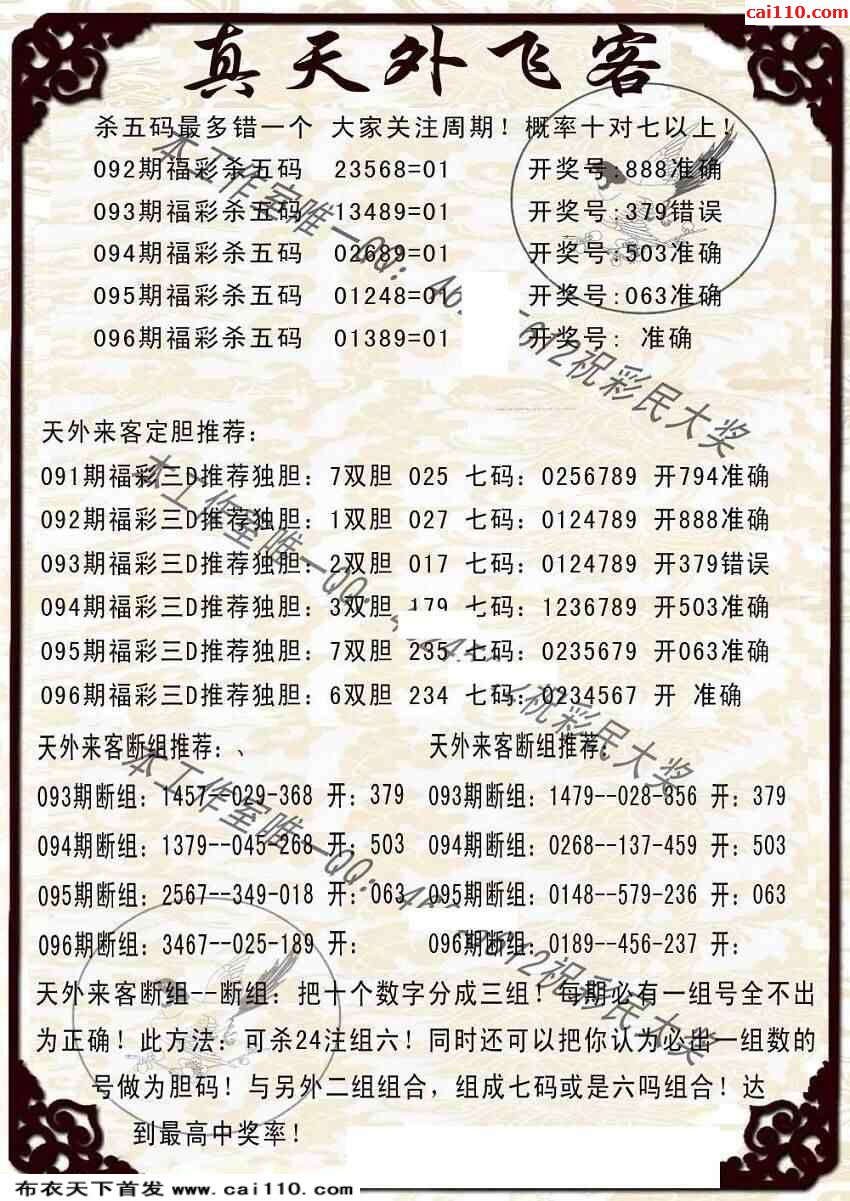 cai110.com
真天外飞客
杀五码最多错一个 大家关注周期！概率十对七以上！
092期福彩杀五码 23568=01 开奖号:888准确
093期福彩杀五码 13489=01 开奖号:379错误
094期福彩杀五码 02689=01 开奖号:503准确
095期福彩杀五码 01248=01 开奖号:063准确
096期福彩杀五码 01389=01 开奖号: 准确
天外来客定胆推荐：
091期福彩三D推荐独胆：7双胆 025 七码：0256789 开794准确
092期福彩三D推荐独胆：1双胆 027 七码：0124789 开888准确
093期福彩三D推荐独胆：2双胆 017 七码：0124789 开379错误
094期福彩三D推荐独胆：3双胆 179 七码：1236789 开503准确
095期福彩三D推荐独胆：7双胆 235 七码：0235679 开063准确
096期福彩三D推荐独胆：6双胆 234 七码：0234567 开 准确
天外来客断组推荐：、 天外来客断组推荐：
093期断组：1457--029-368 开：379 093期断组：1479--028-856 开：379
094期断组：1379--045-268 开：503 094期断组：0268--137-459 开：503
095期断组：2567--349-018 开：063 095期断组：0148--579-236 开：063
096期断组：3467--025-189 开： 096期断组：0189--456-237 开：
天外来客断组--断组：把十个数字分成三组！每期必有一组号全不出
为正确！此方法：可杀24注组六！同时还可以把你认为必出一组数的
号做为胆码！与另外二组组合，组成七码或是六吗组合！达
到最高中奖率！
本工作室唯一QQ： 祝彩民大奖
本工作室唯一QQ： 祝彩民大奖
本工作室唯一QQ： 祝彩民大奖
布衣天下首发 www.cai110.com